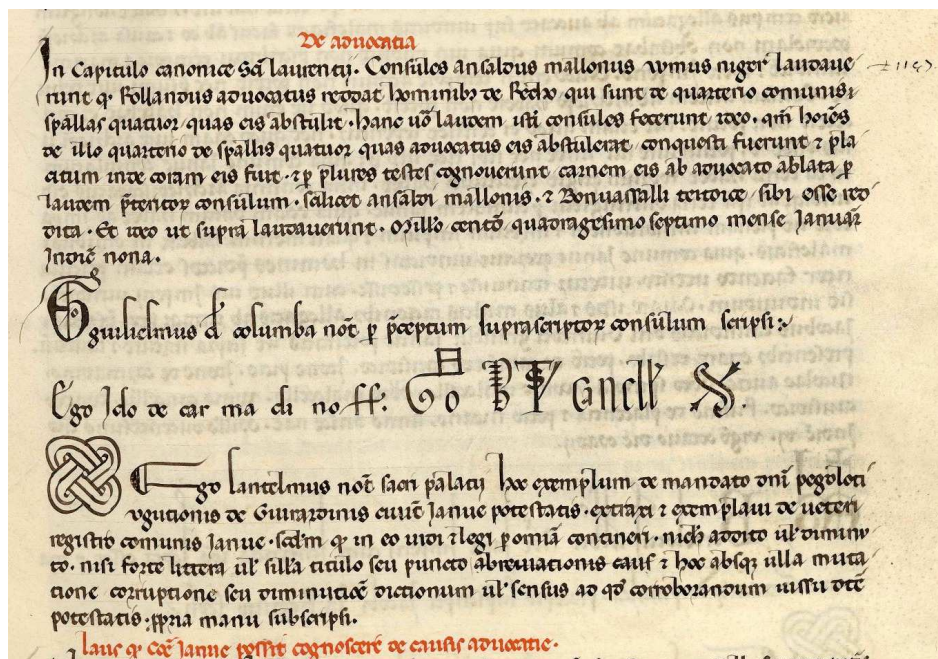 De aduocatia
In Capitulo canonice Sci laurentij. Consules ansaldus mallonus Wmus niger laudaue
runt qd Rollandus aduocatus reddat hominibz de Recho qui sunt de quarterio comunis
spallas quatuor quas eis abstulit. hanc uo laudem isti consules fecerunt ideo. qm hoies
de illo quarterio de spallis quatuor quas aduocatus eis abstulerat conquesti fuerunt ⁊ pla
citum inde coram eis fuit. ⁊ p plures testes cognouerunt carnem eis ab aduocato ablata. p
laudem pteritor consulum. scilicet ansaldi mallonis. ⁊ Bonuassalli tertorice sibi esse red
dita. Et ideo ut supra laudauerunt. Millo cento quadragesimo septimo mense Ianuar
Indic nona.
Ego guilielmus d columba not p pceptum suprascriptor consulum scripsi:
Ego Ido de car ma di no ff:
Ego lantelmus not sacri palatij hoc exemplum de mandato dni pegoloti
vgutionis de Guirardinis ciuit Ianue potestatis. extraxi ⁊ exemplaui de ueteri
registro comunis Ianue. scdm qd in eo uidi ⁊ legi p omia contineri. nich addito ul diminu
to. nisi forte littera ul silla titulo seu puncto abreuiationis caus ⁊ hoc absque ulla muta
tione corruptione seu diminutioe dictionum ul sensus ad qd corroborandum iussu dce
potestatis. ppria manu subscripsi.
laus qd Coe Ianue possit cognoscere de causis aduocatie.